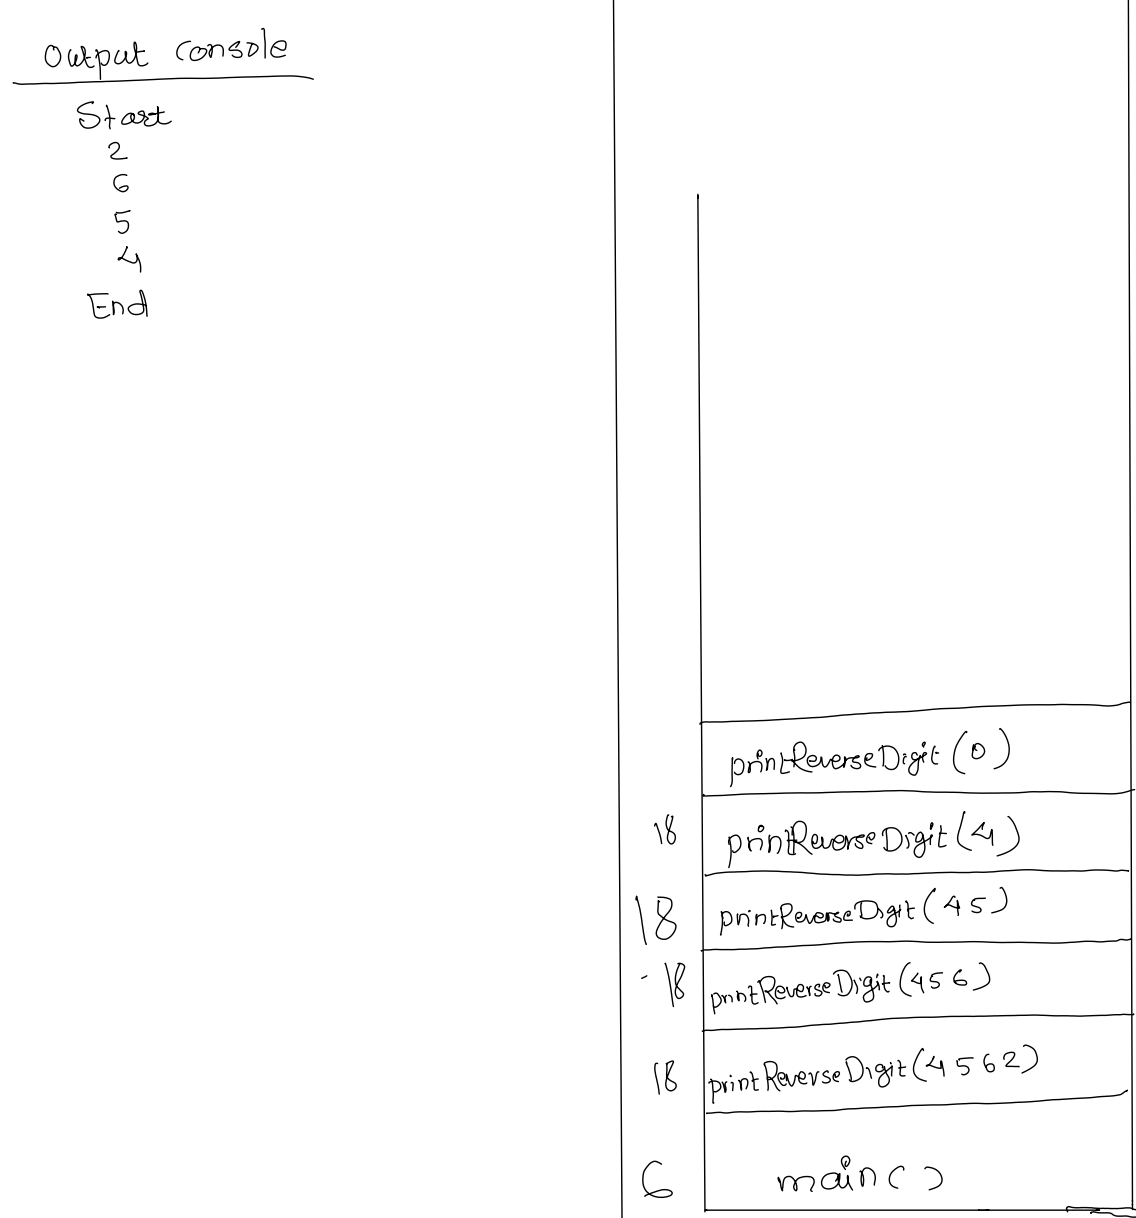 Output console
Start
2
6
5
4
End
printReverseDigit (0)
18 printReverseDigit (4)
18 printReverseDigit (45)
18 printReverseDigit (456)
18 printReverseDigit (4562)
6 main()